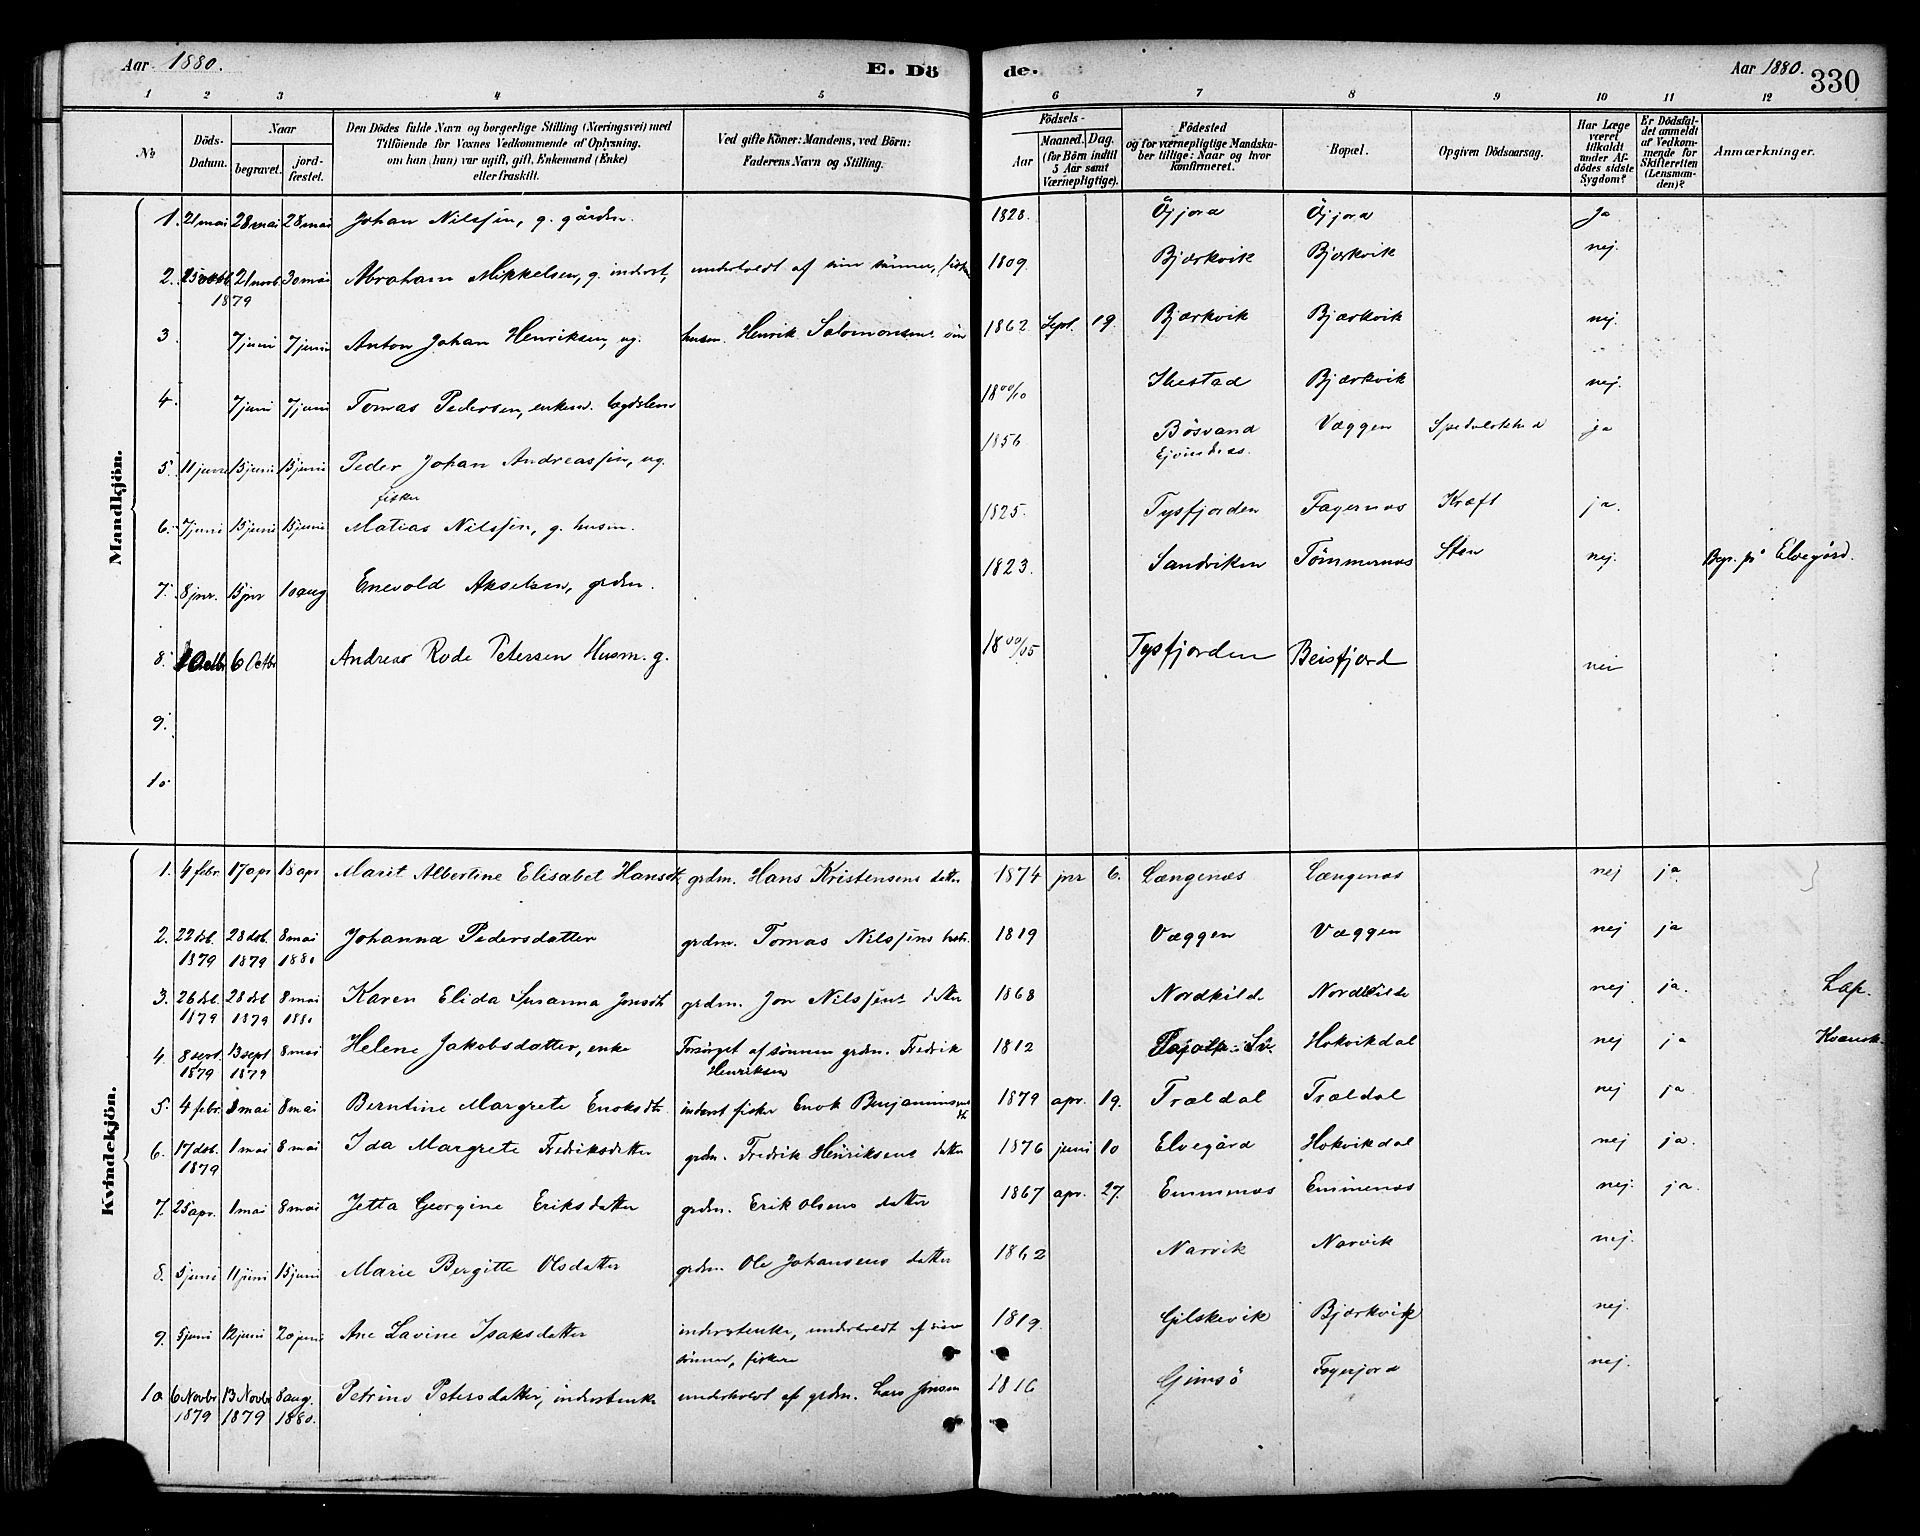 Aar 1880. E. Dö de. Aar 1880. 330
1 2 3 4 5 6 7 8 9 10 11 12
№ Döds-Datum. Naar begravet. jordfæstet. Den Dödes fulde Navn og borgerlige Stilling (Næringsvei) med Tilföiende for Voxnes Vedkommende af Oplysning, om han (hun) var ugift, gift, Enkemand (Enke) eller fraskilt. Ved gifte Koner: Mandens, ved Börn: Faderens Navn og Stilling. Födsels- Aar Maaned. Dag. (for Börn indtil 5 Aar samt Værnepligtige). Födested og for værnepligtige Mandskaber tillige: Naar og hvor konfirmeret. Bopæl. Opgiven Dödsaarsag. Har Læge været tilkaldt under Afdödes sidste Sygdom? Er Dödsfaldet anmeldt af Vedkommende for Skifteretten (Lensmanden)? Anmærkninger.
Mandkjön.
1. 21 mai 28 mai 28 mai Johan Nilssen, g. gårdm. 1828. Öyjora Öyjora Ja
2. 25 oktb. 21 novb. 30 mai Abraham Mikkelsen, g. inderst, underholdt af sine sönner, fiskere 1809. Bjærkvik Bjærkvik nej.
1879
3 7 juni 7 juni Anton Johan Henriksen, ug. husm. Henrik Salomonsens sön 1862 Sept. 19. Bjærkvik Bjærkvik nej.
4. 7 juni 7 juni Tomas Pedersen, enkem. lægdslem 18⁰⁰/10 Ibestad Bjærkvik nej.
5. 11 juni 15 juni 15 juni Peder Johan Andreassen, ug. 1856 Bösvand Væggen Spedalskhed ja
fisker Ejvindnæs.
6. 7 juni 15 juni 15 juni Matias Nilssen, g. husm. 1825. Tysfjorden Fagernæs Kræft ja.
7. 8 jnr. 15 jnr 10 aug Enevold Akselsen, grdm. 1823. Sandviken Tömmernæs Sten nej. Begr. på Elvegård.
8. 1 Octbr 6 Octbr Andreas Rode Petersen Husm. g. 18⁰⁰/05 Tysfjorden Beisfjord nei
9.
10
Kvindekjön.
1. 4 febr. 17 apr 18 apr Marit Albertine Elisabet Hansdtr. grdm. Hans Kristensens datter 1874 jnr 6. Længenæs Længenæs nej ja
2. 22 dsb. 28 dsb. 8 mai Johanna Pedersdatter grdm. Tomas Nilssens hustr. 1819 Væggen Væggen nej ja
1879 1879 1880
3. 26 dsb. 28 dsb 8 mai Karen Elida Susanna Jonsdtr grdm. Jon Nilssens datter 1868 Nordkilde Nordkilde nej ja. Lap.
1879 1879 1880
4. 8 sept 13 sept 8 mai Helene Jakobsdatter, enke Forsörget af sönnen grdm. Fredrik 1812 Hokvikdal nej ja Kvænsk
1879 1879 Henriksen
5. 4 febr. 1 mai 8 mai Berntine Margrete Enoksdtr inderst fisker Enok Benjaminsens dtr. 1879 apr. 19. Trældal Trældal nej ja.
6. 17 dsb. 1 mai 8 mai Ida Margrete Fredriksdatter grdm. Fredrik Henriksens datter 1876 juni 10 Elvegård Hokvikdal nej ja.
1879
7. 25 apr. 1 mai 8 mai Jetta Georgine Eriksdatter grdm. Erik Olsens datter 1867 apr. 27. Emmenæs Emmenæs nej. ja.
8. 5 juni 11 juni 15 juni Marie Bergitte Olsdatter grdm. Ole Johansens datter 1862 Narvik Narvik nej.
9. 5 juni 12 juni 20 juni Ane Lavine Isaksdatter inderstenke, underholdt af sine 1819. Gilskevik Bjærkvik nej.
sönner, fiskere
10 6 Novbr 13 Novbr 8 aug. Petrine Petersdatter, inderstenke underholdt af grdm. Lars Jensen 1816 Gimsö Fagerjord nej.
1879 1879 1880.